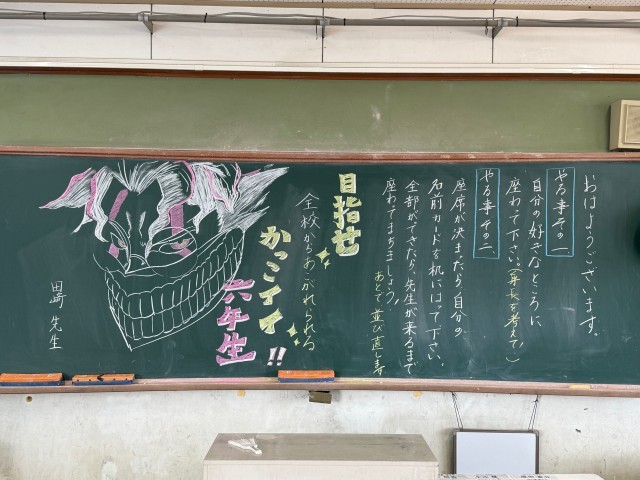 おはようございます。
やる事その一
自分の好きなところに
座わて下さい。（身長を考えて！）
やる事その二
座席が決まったら、自分の
名前カードを机にはって下さい。
全部ができたら、先生が来るまで
座わてまちましょう！
あとで並び直します
目指せ
全校からあこがれられる
かっこイイ
六年生!!
田崎 先生